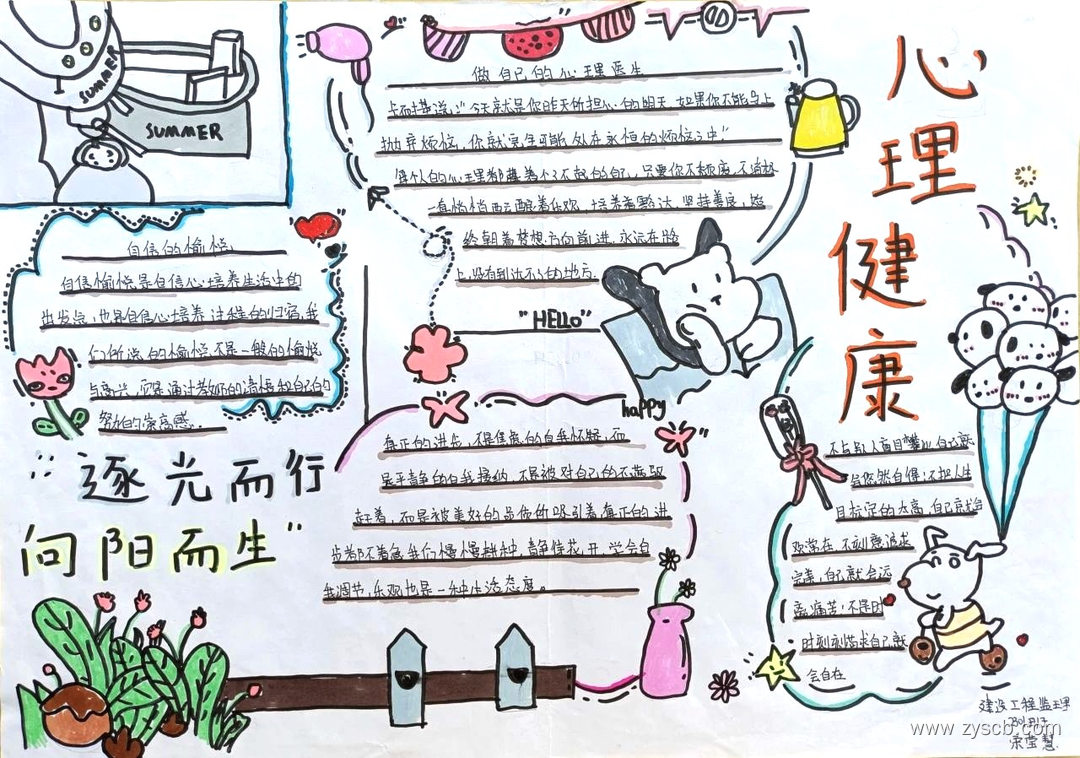 SUMMER
SUMMER
做自己的心理医生
卡耐基说:"今天就是你昨天所担心的明天,如果你不能马上
抛弃烦恼,你就完全可能处在永恒的烦恼之中"
每个人的心理都藏着个不好的自己,只要你不颓废,不消极
一直悄悄酝酿着乐观,培养着豁达,坚持着善良,始
终朝着梦想方向前进,永远在路
上,没有到达不了的地方.
"HELLO"
心理健康
自信的愉悦
自信愉悦是自信心培养生活中的
出发点,也是自信心培养过程的归宿,我
们所说的愉悦不是一般的愉悦
与高兴,它是通过
努力的崇高感..
happy
真正的进步,不是焦急的自我怀疑,而
是平静的自我接纳,不是被对自己的不满驱
赶着,而是被美好的品质所吸引着,真正的进
步都不着急,我们慢慢耕种,静待花开,学会自
我调节,乐观也是一种生活态度。
逐光而行
向阳而生"
不与别人盲目攀比,自己就
会悠然自得;不把人生
目标定的太高,自己就会
欢常在,不刻意追求
完美,自己就会远
离痛苦;不是时
时刻刻苛求自己,就
会自在
建设工程监理
荣莹慧
www.zyscb.com